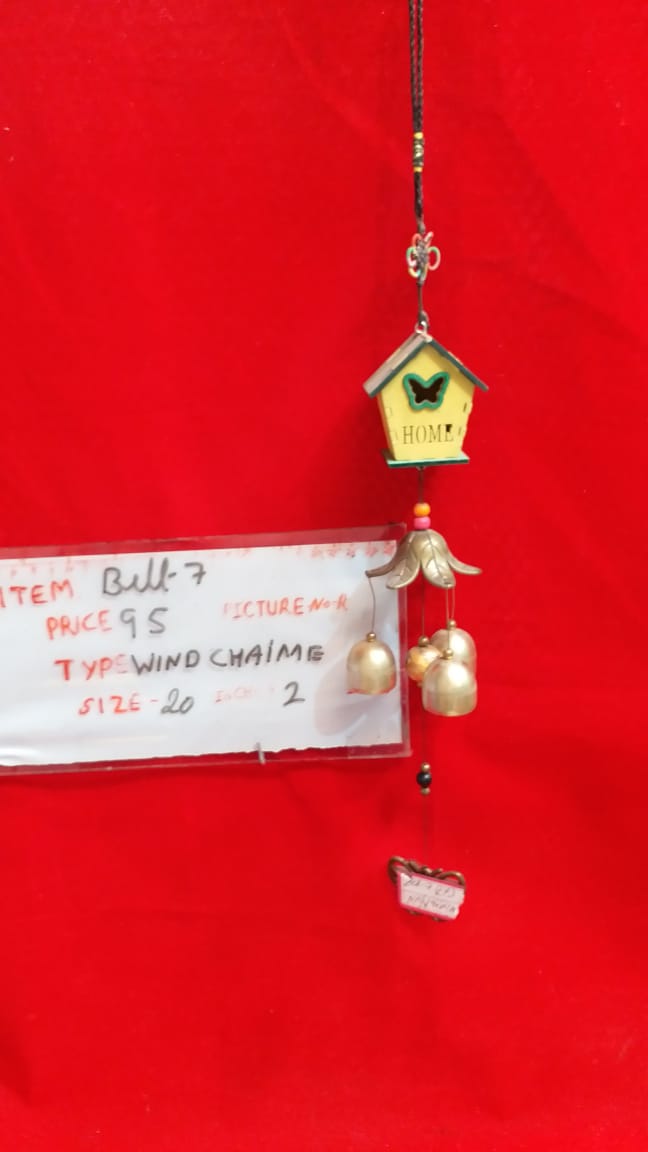 HOME
ITEM Bell-7
PRICE 95 PICTURE-No-R
TYPE WIND CHAIME
SIZE - 20 INCH 2